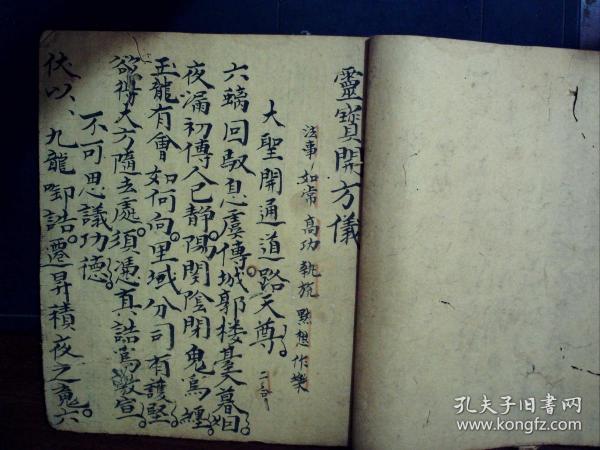 靈寶開方儀
法事如常 高功執旒 默想 作樂
大聖開通道路天尊 二合
六螭回馭息虞傳城郭樓臺入暮曰
夜漏初傳人已靜陽関陰閉鬼為纏
玉龍有會如何向里域分司有護堅
欲得大方隨去處須憑真誥為敷宣
不可思議功德
伏以、九龍啣誥遷昇積夜之竟六
孔夫子旧书网
www.kongfz.com